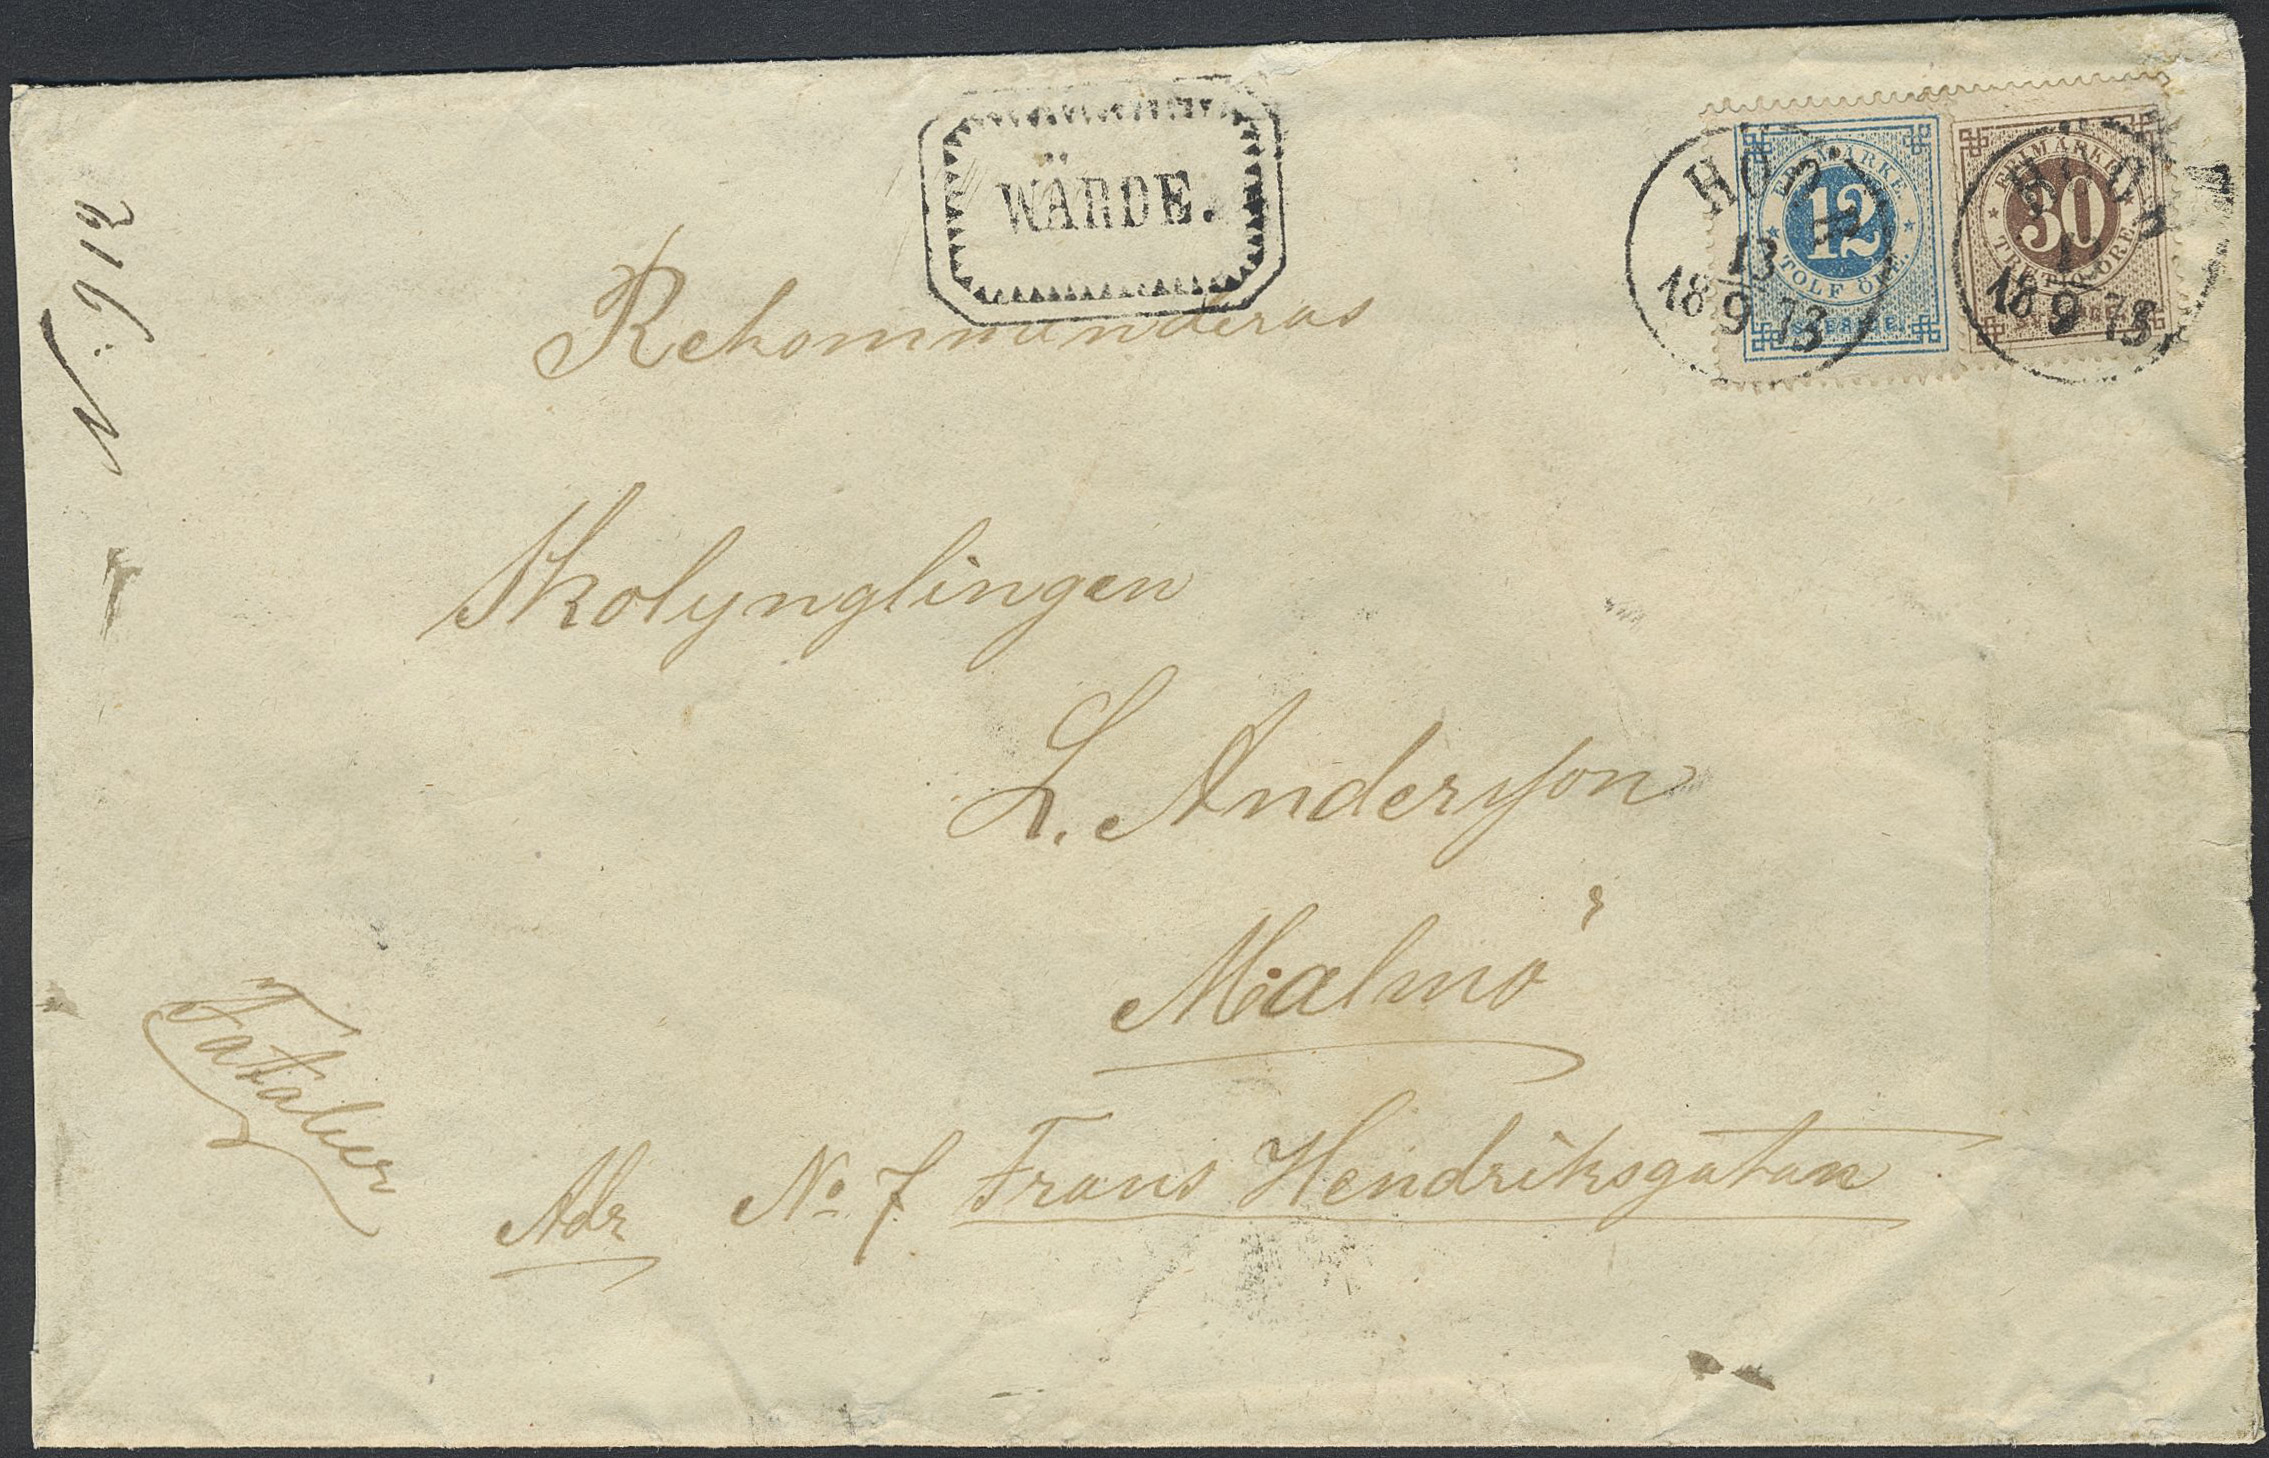 WÄRDE.
N. 912
FRIMÄRKE
12
TOLF ÖRE.
SVERIGE.
FRIMÄRKE
30
TRETTIO ÖRE.
SVERIGE.
13
18 9 73
18 9 73
Rekommenderas
Skolynglingen
L. Andersson
Malmö
Adr No 7 Frans Hendriksgatan